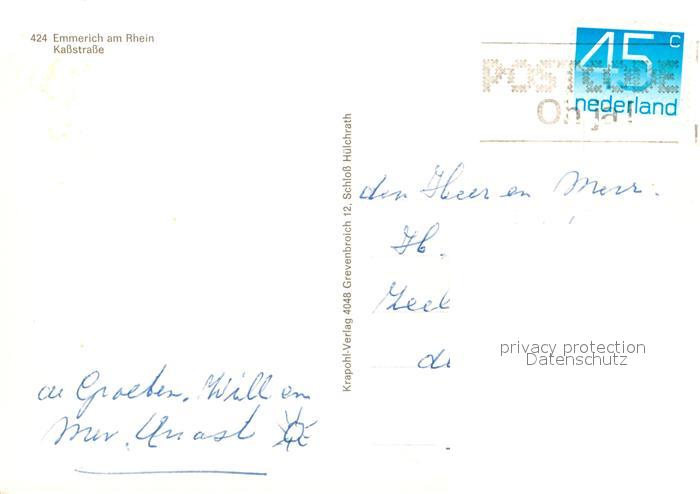 424 Emmerich am Rhein
Kaßstraße
45 c
nederland
POSTCODE
Oh ja!
Krapohl-Verlag 4048 Grevenbroich 12, Schloß Hülchrath
den Heer en Mevr.
H.
de
privacy protection
Datenschutz
de Groeten, Will en
Mevr.